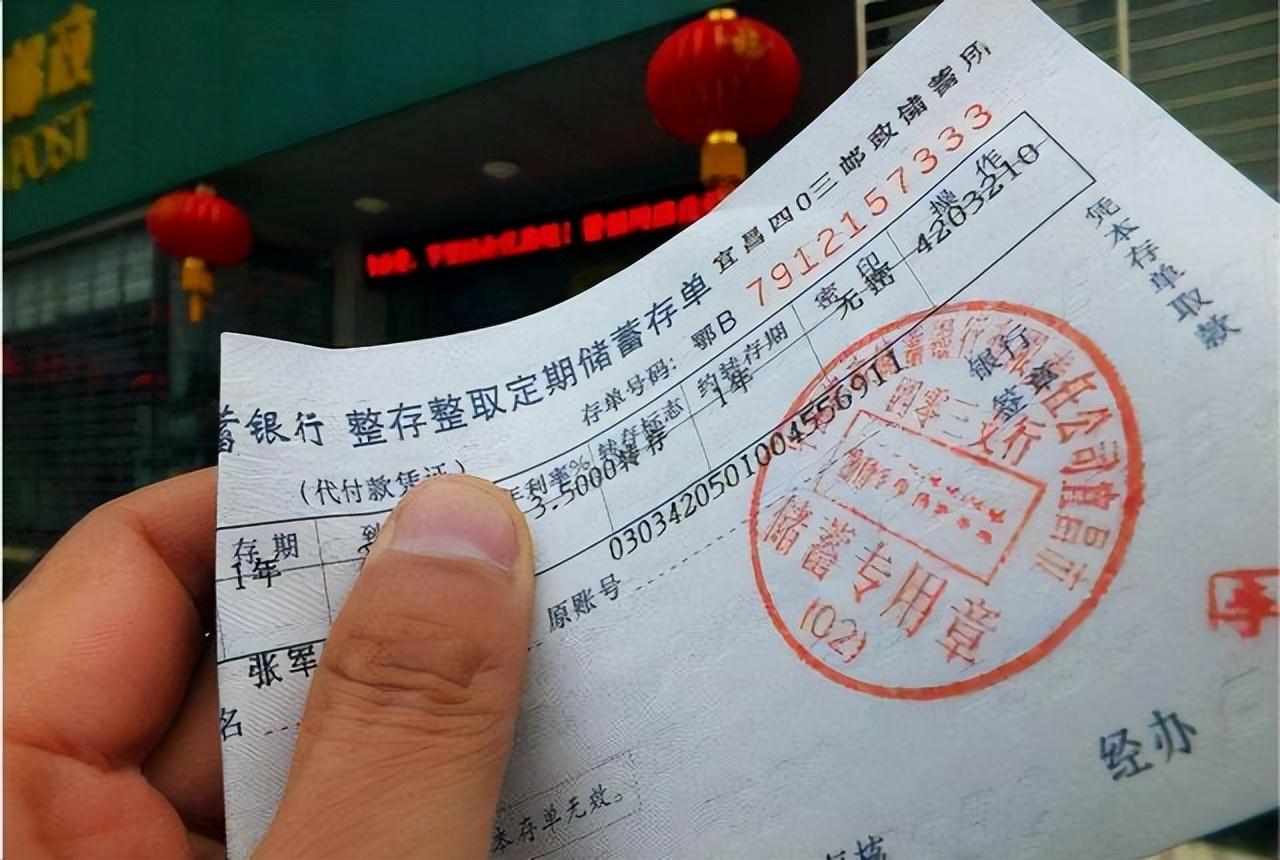 邮政
POST
宜昌四0三邮政储蓄所
蓄银行 整存整取定期储蓄存单
(代付款凭证)
存单号码: 鄂B 7912157333
存期
年利率% 转存标志 约转存期 密印 操作
1年
3.5000转存 1年 无 4203210
0303420501004556911
原账号
张军
名
银行
签章
凭本存单取款
公司宜昌市
储蓄专用章
(20)
经办
本存单无效。